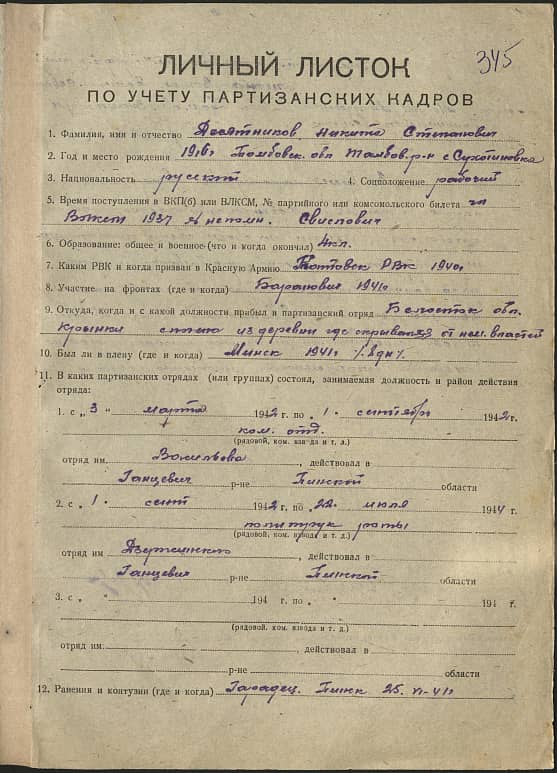 345
ЛИЧНЫЙ ЛИСТОК
ПО УЧЕТУ ПАРТИЗАНСКИХ КАДРОВ
1. Фамилия, имя и отчество Десятников Никита Степанович
2. Год и место рождения 1916г Тамбовск. обл Тамбов. р-н с Сухотиновка
3. Национальность русский 4. Соцположение рабочий
5. Время поступления в ВКП(б) или ВЛКСМ, № партийного или комсомольского билета чл
Влксм 1937 № непомн. Свислович
6. Образование: общее и военное (что и когда окончил) 4кл.
7. Каким РВК и когда призван в Красную Армию РВК 1940г
8. Участие на фронтах (где и когда) Баранович 1941г
9. Откуда, когда и с какой должности прибыл в партизанский отряд Белосток обл.
Крынки из деревни где скрывался от нем. властей
10. Был ли в плену (где и когда) Минск 1941г 1. 8дн.
11. В каких партизанских отрядах (или группах) состоял, занимаемая должность и район действия
отряда:
1. с „ 3 " марта 1942 г. по „ 1 · сентября 1942г.
ком. отд.
(рядовой, ком. взвода и т. д.)
отряд им. Васильева, действовал в
Ганцевич р-не Пинской области
2. с „ 1 · сент 1942 г. по „ 22 · июля 1944 г.
политрук роты
(рядовой, ком. взвода и т. д.)
отряд им Дзержинского, действовал в
Ганцевич р-не Пинской области
3. с „ " 194 г. по „ " 194 г.
(рядовой, ком. взвода и т. д.)
отряд им. , действовал в
р-не области
12. Ранения и контузии (где и когда) Гарадец. Пинк 25. VI-41г